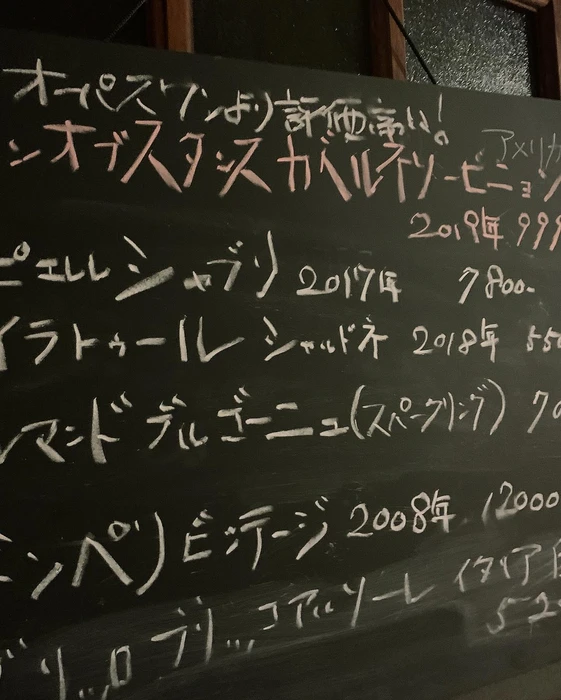 オーパスワンより評価高い!
アメリカ
シオブスタンス カベルネソービニョン
2019年 999
ピエレル シャブリ 2017年 7800-
イラトゥール シャルドネ 2018年 550
マンド デルゴーニュ(スパークリング) 70
ンペリ ビンテージ 2008年 12000
コアルソーレ イタリア
52